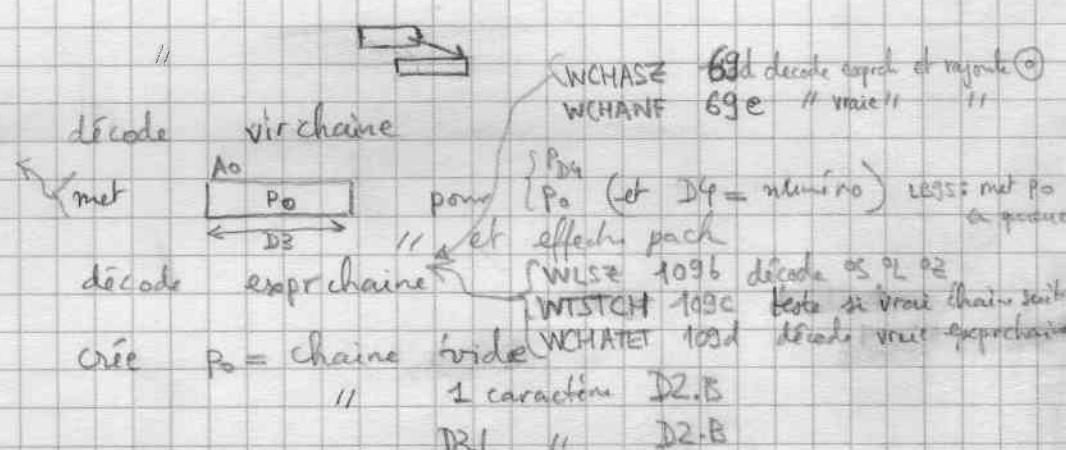 //
WCHASZ 69d decode exprch et rajoute 0
WCHANF 69e // vraie // //
décode virchaine
A0
met P0 pour { PD4
P0 (et D4 = numéro) : met P0
D3
// et effectue pach
décode exprchaine
WLSZ 109b décode
WTSTCH 109c teste si vrai chaine suit
WCHATET 109d décode vraie exprchaine
crée P0 = chaine vide
// 1 caractère D2.B
// D2.B